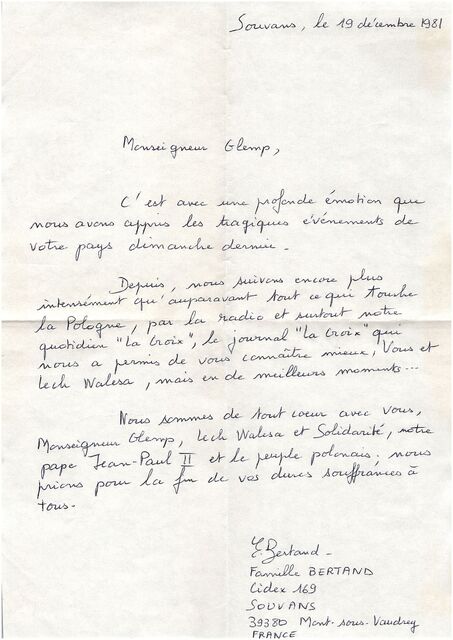 Souvans, le 19 décembre 1981
Monseigneur Glemp,
C'est avec une profonde émotion que
nous avons appris les tragiques événements de
votre pays dimanche dernier.
Depuis, nous suivons encore plus
intensément qu'auparavant tout ce qui touche
la Pologne, par la radio et surtout notre
quotidien "La Croix", le journal "La Croix" qui
nous a permis de vous connaître mieux, Vous et
Lech Walesa, mais en de meilleurs moments...
Nous sommes de tout coeur avec Vous,
Monseigneur Glemp, Lech Walesa et Solidarité, notre
pape Jean-Paul II et le peuple polonais. nous
prions pour la fin de vos dures souffrances à
tous.
E. Bertand -
Famille BERTAND
Cidex 169
SOUVANS
39380 Mont-sous-Vaudrey
FRANCE